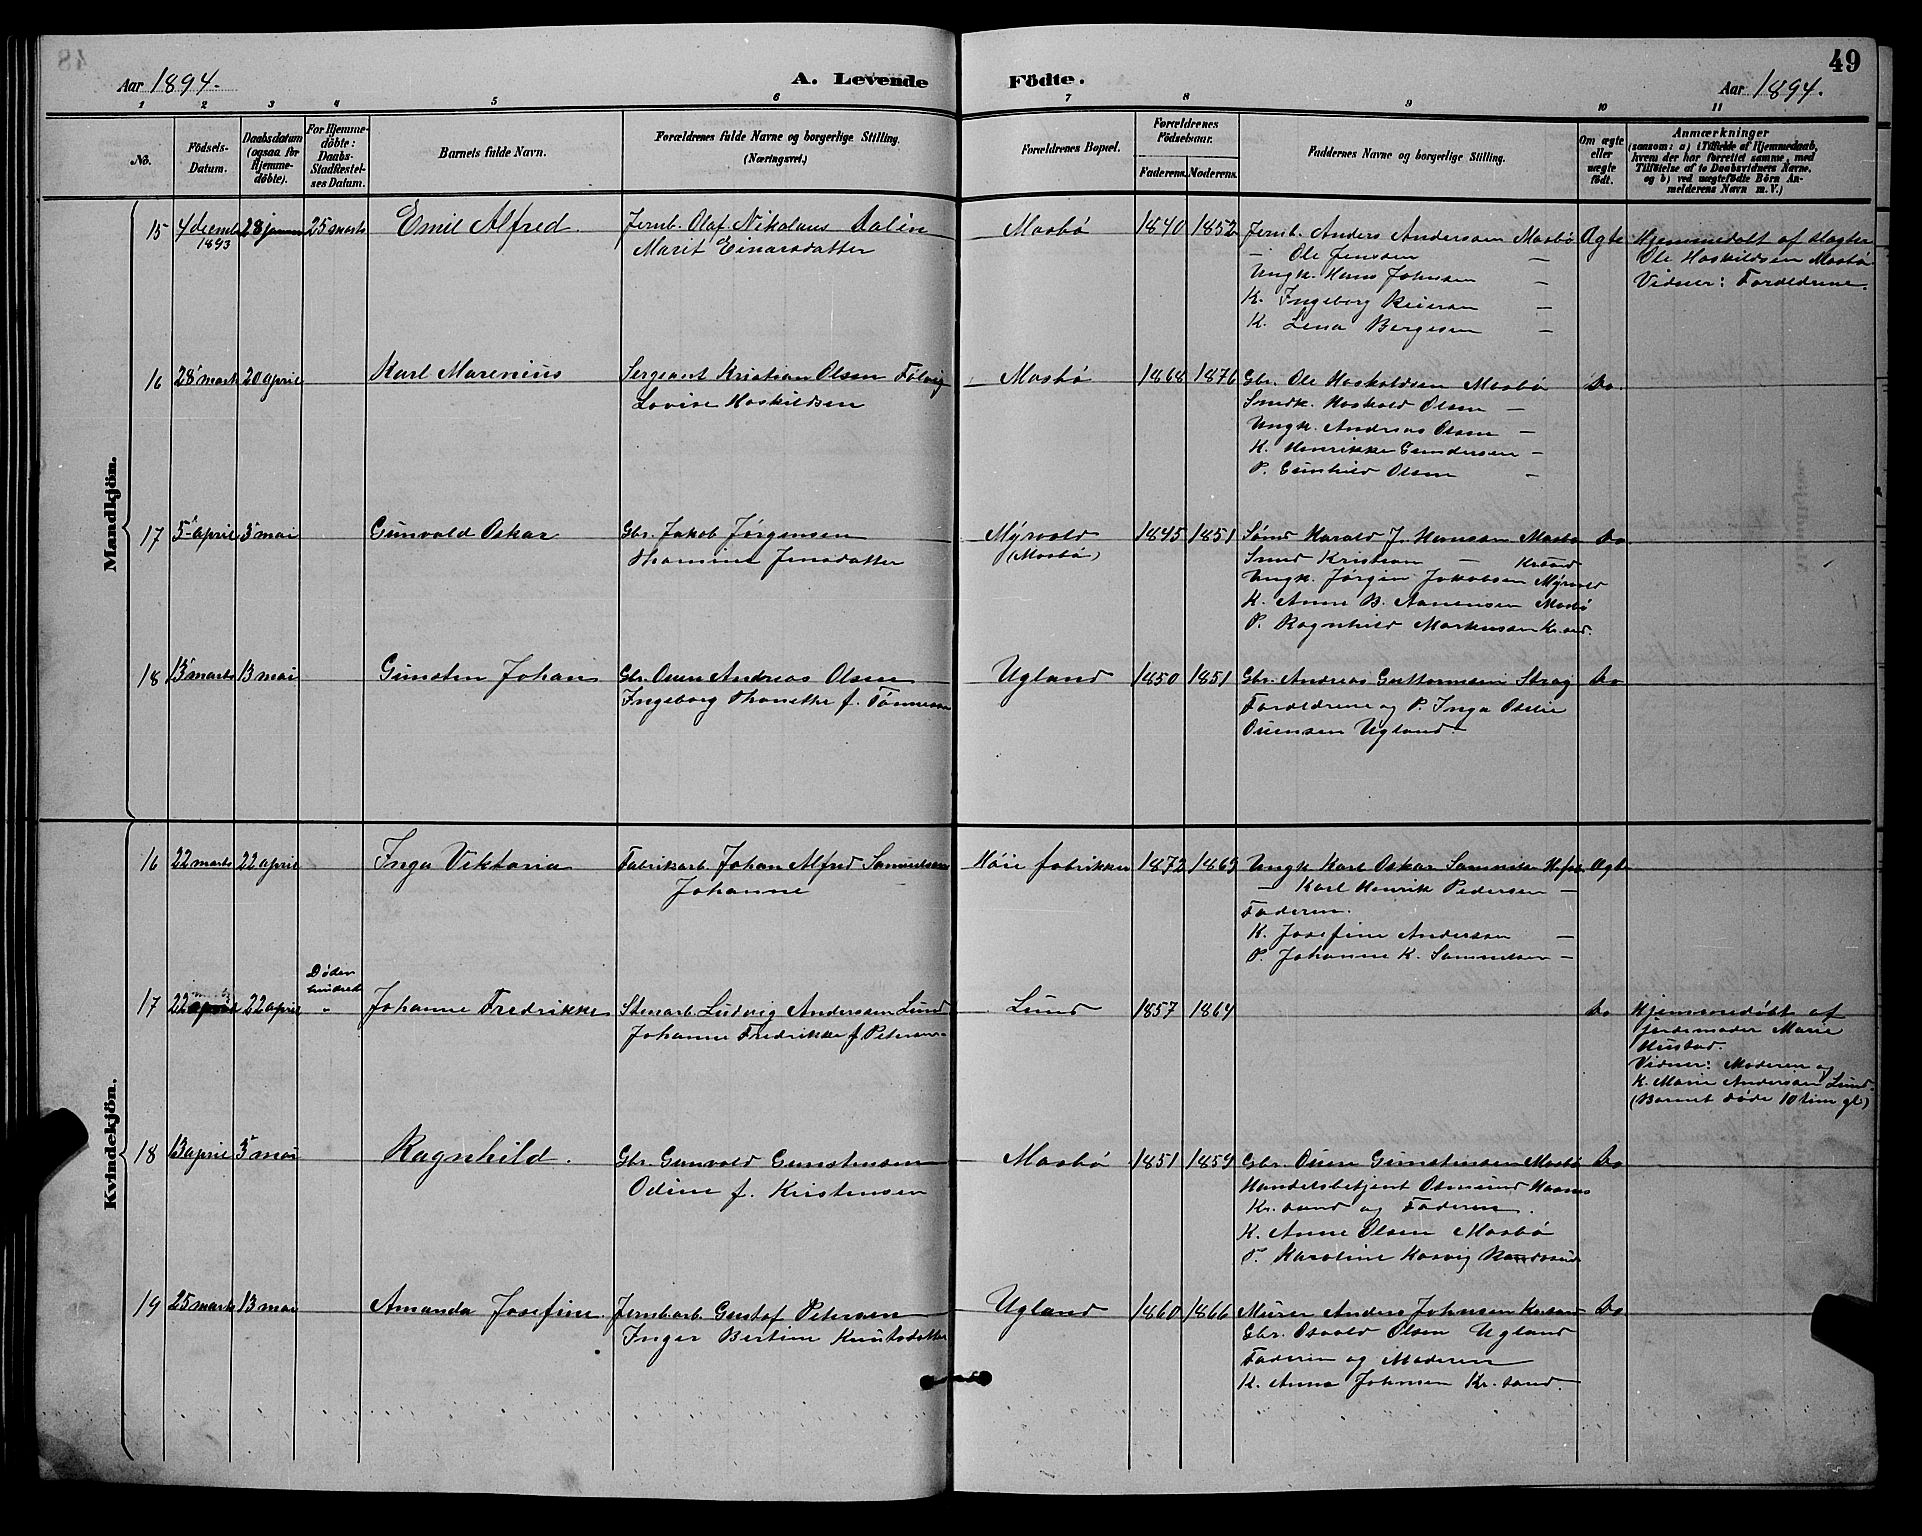 48
Aar 1894.
A. Levende
Födte.
49
Aar 1894.
1 2 3 4 5 6 7 8 9 10 11
No.
Födsels-
Datum.
Daabsdatum
(ogsaa for
Hjemme-
döbte).
For Hjemme-
döbte:
Daabs-
Stadfæstel-
ses Datum.
Barnets fulde Navn.
Forældrenes fulde Navne og borgerlige Stilling.
(Næringsvei.)
Forældrenes Bopæl.
Forældrenes
Födselsaar.
Faderens. Moderens.
Faddernes Navne og borgerlige Stilling.
Om ægte
eller
uægte
födt.
Anmærkninger
(saasom: a) i Tilfælde af Hjemmedaab,
hvem der har forrettet samme, med
Tilföielse af to Daabsvidners Navne,
og b) ved uægtefödte Börn An-
melderens Navn m. V.)
Mandkjön.
15 4 decemb 1893 28 januar 25 marts Emil Alfred. Jernb. Olaf Nikolaus Dalén
Marit Einarsdatter
Mosbø 1840 1852 Jernb. Anders Andersen Mosbø Ægte
— Ole Jensen —
Ungk. Hans Johnsen —
K. Ingeborg Reiersen —
K. Lena Bergesen —
Hjemmedøbt af slagter
Ole Hoskildsen Mosbø
Vidner: Forældrene.
16 28 marts 20 april Karl Marenius Sergeant Kristian Olsen Folvig
Lovise Hoskildsen
Mosbø 1868 1876 Gbr. Ole Hoskoldsen Mosbø Do.
Smedk. Hoskold Olsen —
Ungk. Andreas Olsen —
K. Henrikke Gundersen —
P. Gunhild Olsen —
17 5 april 3 mai Gunvald Oskar Gbr. Jakob Jørgensen
Thomine Jensdatter
Myrvold
(Mosbø)
1845 1851 Sømd Harald J. Hansen Mosbø Do
Smed Kristian — Krsand
Ungk. Jørgen Jakobsen Myrvold
K. Anne B. Aanensen Mosbø
P. Ragnhild Markussen Kr.sand.
18 13 marts 13 mai Gunsten Johan Gbr. Ouen Andreas Olsen
Ingeborg Thonette f. Tønnesen
Ugland 1850 1851 Gbr. Andreas Guttormsen Strag Do
Forældrene og P. Inga Otelie
Ouensen Ugland.
Kvindekjön.
16 22 marts 22 april Inga Viktoria Fabrikarb. Johan Alfred Samuelsen
Johanne
Høie fabrikker 1872 1869 Ungk. Karl Oskar Samuelsen H.fab. Ægte
— Karl Henrik Pedersen —
Faderen.
K. Josefine Andersen —
P. Johanne K. Samuelsen —
17 22 22 april Døden
hindret Johanne Fredrikke Stenarb. Ludvig Andersen Lund
Johanne Fredrikke f. Petersen
Lund 1857 1864 Do
Hjemmedøbt af
jordemoder Marie
Hustad.
Vidner: Moderen og
K. Marie Andersen Lund.
(Barnet døde 10 tim gl)
18 13 april 3 mai Ragnhild. Gbr. Gunvald Gunstensen
Odine f. Kristensen
Mosbø 1851 1859 Gbr. Ouen Gunstensen Mosbø Do
Handelsbetjent Osmund
Kr.sand og Faderen.
K. Anne Olsen Mosbø
P. Karoline Kosvig Randesund
19 25 marts 13 mai Amanda Josefine Jernbarb. Gustaf Petersen
Inger Bertine Knutsdatter
Ugland 1860 1866 Murer Anders Johnsen Kr.sand Do
Gbr. Osvald Olsen Ugland
Faderen og Moderen
K. Anna Johnsen Kr.sand.